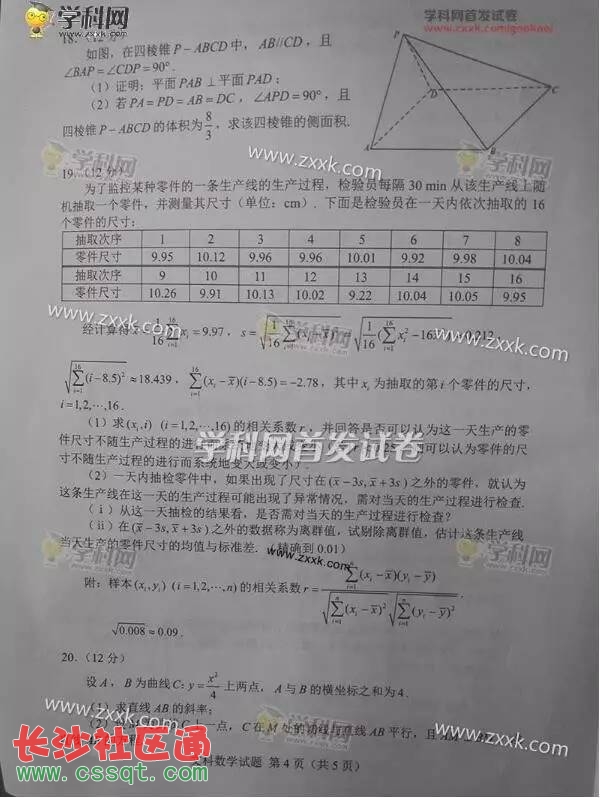 学科网
www.zxxk.com
学科网首发试卷
18. (12分)
如图，在四棱锥 P－ABCD 中，AB//CD，且
∠BAP＝∠CDP＝90°.
（1）证明：平面 PAB ⊥平面 PAD；
（2）若 PA＝PD＝AB＝DC，∠APD＝90°，且
四棱锥 P－ABCD 的体积为 8/3，求该四棱锥的侧面积.
P
D
C
A
B
学科网
www.zxxk.com
19.（12 分）
为了监控某种零件的一条生产线的生产过程，检验员每隔 30 min 从该生产线上随
机抽取一个零件，并测量其尺寸（单位：cm）. 下面是检验员在一天内依次抽取的 16
个零件的尺寸：
抽取次序 1 2 3 4 5 6 7 8
零件尺寸 9.95 10.12 9.96 9.96 10.01 9.92 9.98 10.04
抽取次序 9 10 11 12 13 14 15 16
零件尺寸 10.26 9.91 10.13 10.02 9.22 10.04 10.05 9.95
www.zxxk.com
学科网
www.zxxk.com
经计算得 x̄ = 1/16 ∑(i=1..16) x_i = 9.97，s =
√(∑(i=1..16)(i−8.5)²) ≈ 18.439，∑(i=1..16)(x_i − x̄)(i−8.5) = −2.78，其中 x_i 为抽取的第 i 个零件的尺寸，
i=1,2,⋯,16 .
（1）求(x_i, i)（i=1,2,⋯,16）的相关系数 r，并回答是否可以认为这一天生产的零
件尺寸不随生产过程的进行 可以认为零件的尺
学科网首发试卷
寸不随生产过程的进行而系统地变大或变小）.
（2）一天内抽检零件中，如果出现了尺寸在(x̄ − 3s, x̄ + 3s)之外的零件，就认为
这条生产线在这一天的生产过程可能出现了异常情况，需对当天的生产过程进行检查.
（i）从这一天抽检的结果看，是否需对当天的生产过程进行检查？
（ii）在(x̄ − 3s, x̄ + 3s)之外的数据称为离群值，试剔除离群值，估计这条生产线
当天生产的零件尺寸的均值与标准差.（精确到 0.01）
学科网
www.zxxk.com
学科网
附：样本(x_i, y_i)（i=1,2,⋯,n）的相关系数 r = ∑(i=1..n)(x_i − x̄)(y_i − ȳ) / (√(∑(i=1..n)(x_i − x̄)²) √(∑(i=1..n)(y_i − ȳ)²))，
√0.008 ≈ 0.09 .
20.（12 分）
设 A，B 为曲线 C: y = x²/4 上两点，A 与 B 的横坐标之和为 4 .
（1）求直线 AB 的斜率；
www.zxxk.com
上一点，C 在 M 处的切线与直线 AB 平行，且
www.zxxk.com
长沙社区通
www.cssqt.com
科数学试题 第 4 页（共 5 页）